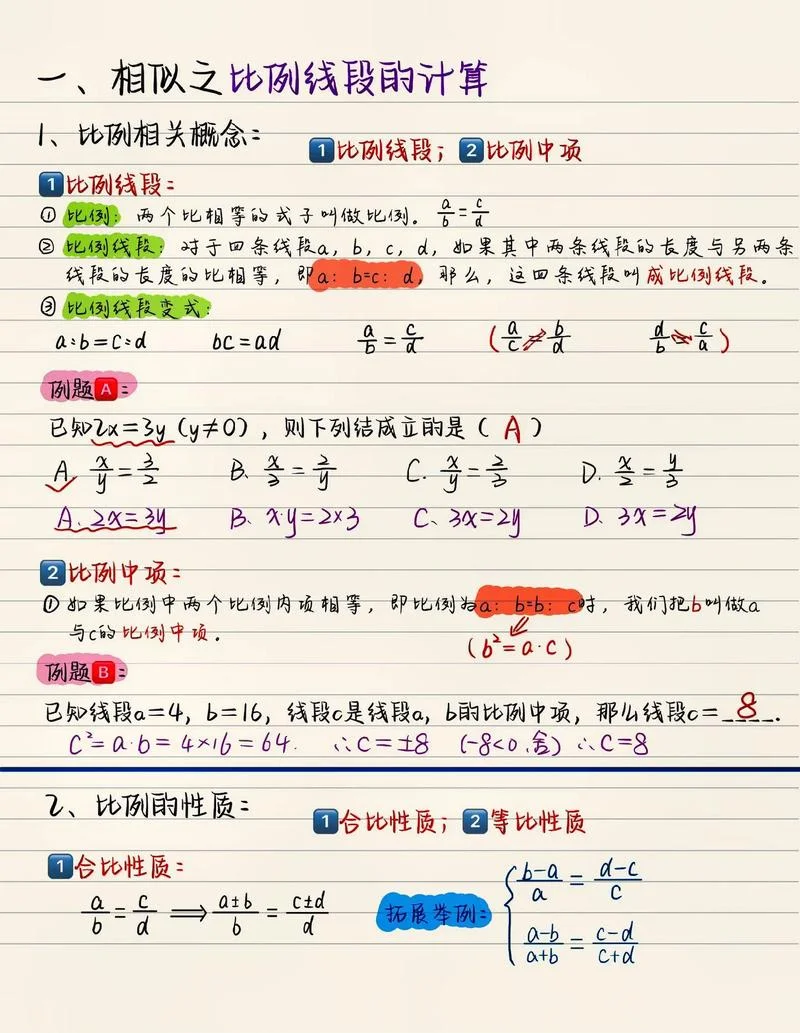 一、相似之比例线段的计算
1、比例相关概念：
1 比例线段；2 比例中项
1 比例线段：
① 比例：两个比相等的式子叫做比例. a/b = c/d
② 比例线段：对于四条线段a，b，c，d，如果其中两条线段的长度与另两条
线段的长度的比相等，即a：b=c：d，那么，这四条线段叫成比例线段。
③ 比例线段变式：
a:b=c:d bc=ad a/b = c/d (a/c = b/d d/b = c/a)
例题A：
已知2x=3y (y≠0)，则下列结成立的是（ A ）
A. x/y = 3/2 B. x/3 = 2/y C. x/y = 2/3 D. x/2 = y/3
A. 2x=3y B. x·y=2×3 C. 3x=2y D. 3x=2y
2 比例中项：
① 如果比例中两个比例内项相等，即比例为a：b=b：c时，我们把b叫做a
与c的比例中项。
(b²=a·c)
例题B：
已知线段a=4，b=16，线段c是线段a，b的比例中项，那么线段c=_8_.
c²=a·b=4×16=64. ∴c=±8 (-8<0，舍) ∴c=8
2、比例的性质：
1 合比性质；2 等比性质
1 合比性质：
a/b = c/d ⟹ (a±b)/b = (c±d)/d
拓展举例：
{ (b-a)/a = (d-c)/c
(a-b)/(a+b) = (c-d)/(c+d)